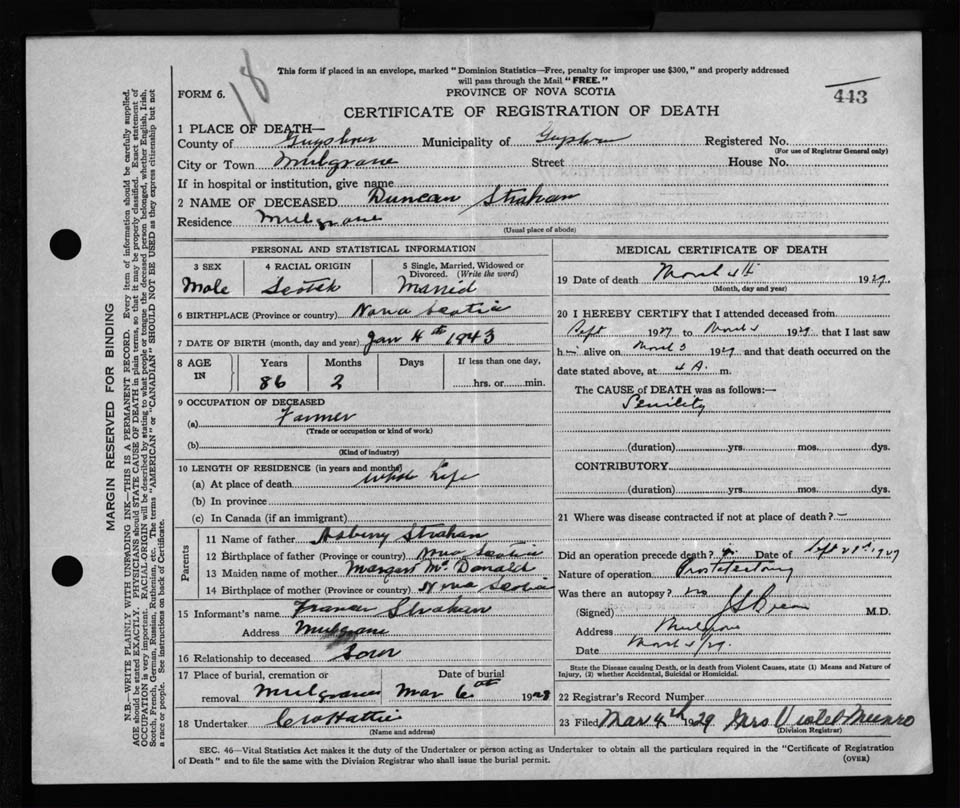 This form if placed in an envelope, marked "Dominion Statistics—Free, penalty for improper use $300," and properly addressed
will pass through the Mail "FREE."
18
443
FORM 6.
PROVINCE OF NOVA SCOTIA
CERTIFICATE OF REGISTRATION OF DEATH
1 PLACE OF DEATH—
County of Guysboro Municipality of Registered No.
(For use of Registrar General only)
City or Town Mulgrave Street House No.
If in hospital or institution, give name
2 NAME OF DECEASED Duncan Strahan
Residence Mulgrave
(Usual place of abode)
PERSONAL AND STATISTICAL INFORMATION
3 SEX 4 RACIAL ORIGIN 5 Single, Married, Widowed or Divorced. (Write the word)
Male Scotch Married
6 BIRTHPLACE (Province or country) Nova Scotia
7 DATE OF BIRTH (month, day and year) Jan 4th 1943
8 AGE IN Years Months Days If less than one day,
86 2 hrs. or min.
9 OCCUPATION OF DECEASED
(a) Farmer
(Trade or occupation or kind of work)
(b)
(Kind of industry)
10 LENGTH OF RESIDENCE (in years and months)
(a) At place of death Whole Life
(b) In province
(c) In Canada (if an immigrant)
Parents
11 Name of father Strahan
12 Birthplace of father (Province or country) Nova Scotia
13 Maiden name of mother Margaret McDonald
14 Birthplace of mother (Province or country) Nova Scotia
15 Informant's name Strahan
Address Mulgrave
16 Relationship to deceased Son
17 Place of burial, cremation or Date of burial
removal Mulgrave Mar 6th 192
18 Undertaker
(Name and address)
MEDICAL CERTIFICATE OF DEATH
19 Date of death March 4th 1929.
(Month, day and year)
20 I HEREBY CERTIFY that I attended deceased from
Sept 19 to March 4 1929, that I last saw
h alive on March 3 1929 and that death occurred on the
date stated above, at 4 A. m.
The CAUSE of DEATH was as follows:—
Senility
(duration) yrs. mos. dys.
CONTRIBUTORY
(duration) yrs. mos. dys.
21 Where was disease contracted if not at place of death? —
Did an operation precede death? Date of Sept
Nature of operation
Was there an autopsy? no
(Signed) M.D.
Address Mulgrave
Date March 4/29.
State the Disease causing Death, or in death from Violent Causes, state (1) Means and Nature of
Injury, (2) whether Accidental, Suicidal or Homicidal.
22 Registrar's Record Number
23 Filed Mar 4th 1929 Mrs Violet Munro
(Division Registrar)
SEC. 46—Vital Statistics Act makes it the duty of the Undertaker or person acting as Undertaker to obtain all the particulars required in the "Certificate of Registration
of Death" and to file the same with the Division Registrar who shall issue the burial permit.
(OVER)
MARGIN RESERVED FOR BINDING
N.B.—WRITE PLAINLY, WITH UNFADING INK—THIS IS A PERMANENT RECORD. Every item of information should be carefully supplied.
AGE should be stated EXACTLY. PHYSICIANS should STATE CAUSE OF DEATH in plain terms, so that it may be properly classified. Exact statement of
OCCUPATION is very important. RACIAL ORIGIN will be described by stating to what people or tongue the deceased person belonged, whether English, Irish,
Scotch, French, German, Russian, Ruthenian, etc. The terms "AMERICAN" or "CANADIAN" SHOULD NOT BE USED as they express citizenship but not
a race or people. See instructions on back of Certificate.